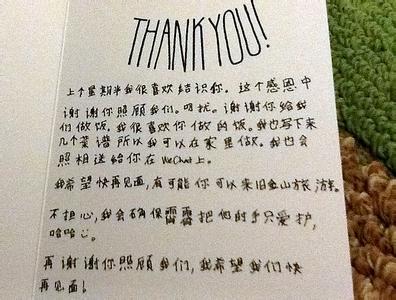 THANK YOU!
上个星期半我很喜欢结识你. 这个感恩中
谢谢你照顾我们. 叨扰. 谢谢你给我
们做饭. 我很喜欢你做的饭. 我也写下来
几个菜谱所以我可以在家里做. 我也会
照相送给你在 WeChat 上.
我希望快再见面, 有可能你可以来旧金山旅游.
不担心, 我会确保霄霄把他的手只爱护,
哈哈☺.
再谢谢你照顾我们, 我希望我们快
再见面!